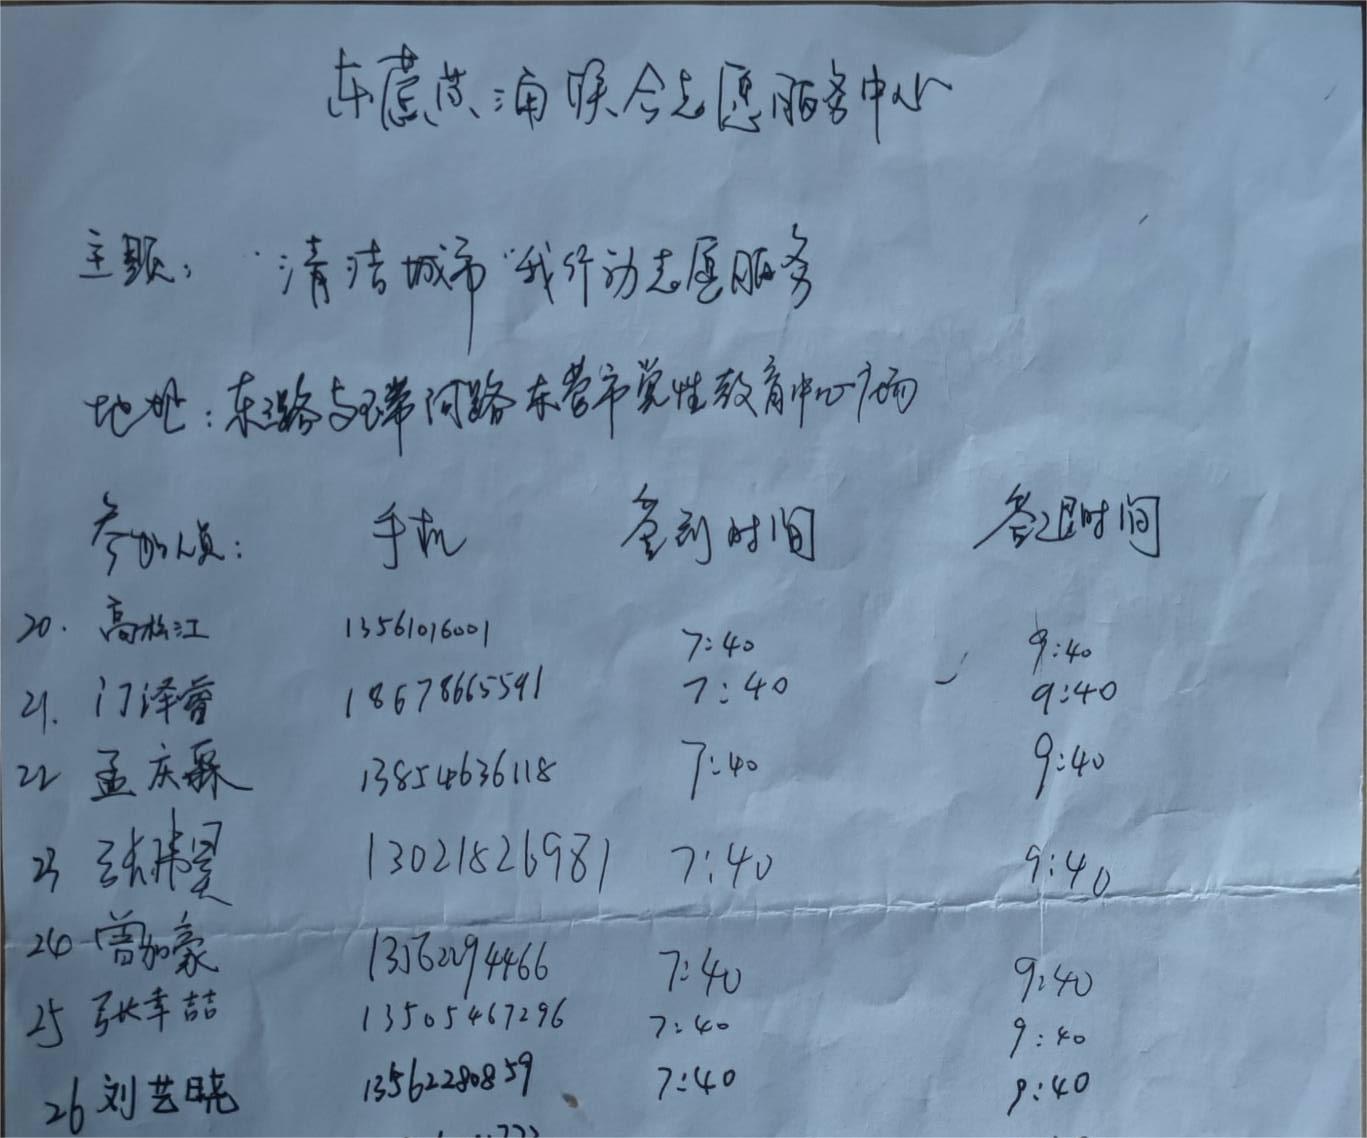 东营黄河联合志愿服务中心
主题: "清洁城市"我行动志愿服务
地址:东三路与玉带河路东营市党性教育中心广场
参加人员: 手机 签到时间 签退时间
20. 高松江 13561016001 7:40 9:40
21. 门泽睿 18678665591 7:40 9:40
22 孟庆霖 13854636118 7:40 9:40
23 张祎昊 13021826981 7:40 9:40
24 曾加豪 13562294466 7:40 9:40
25 张幸喆 13505467296 7:40 9:40
26 刘艺晓 13562280859 7:40 9:40